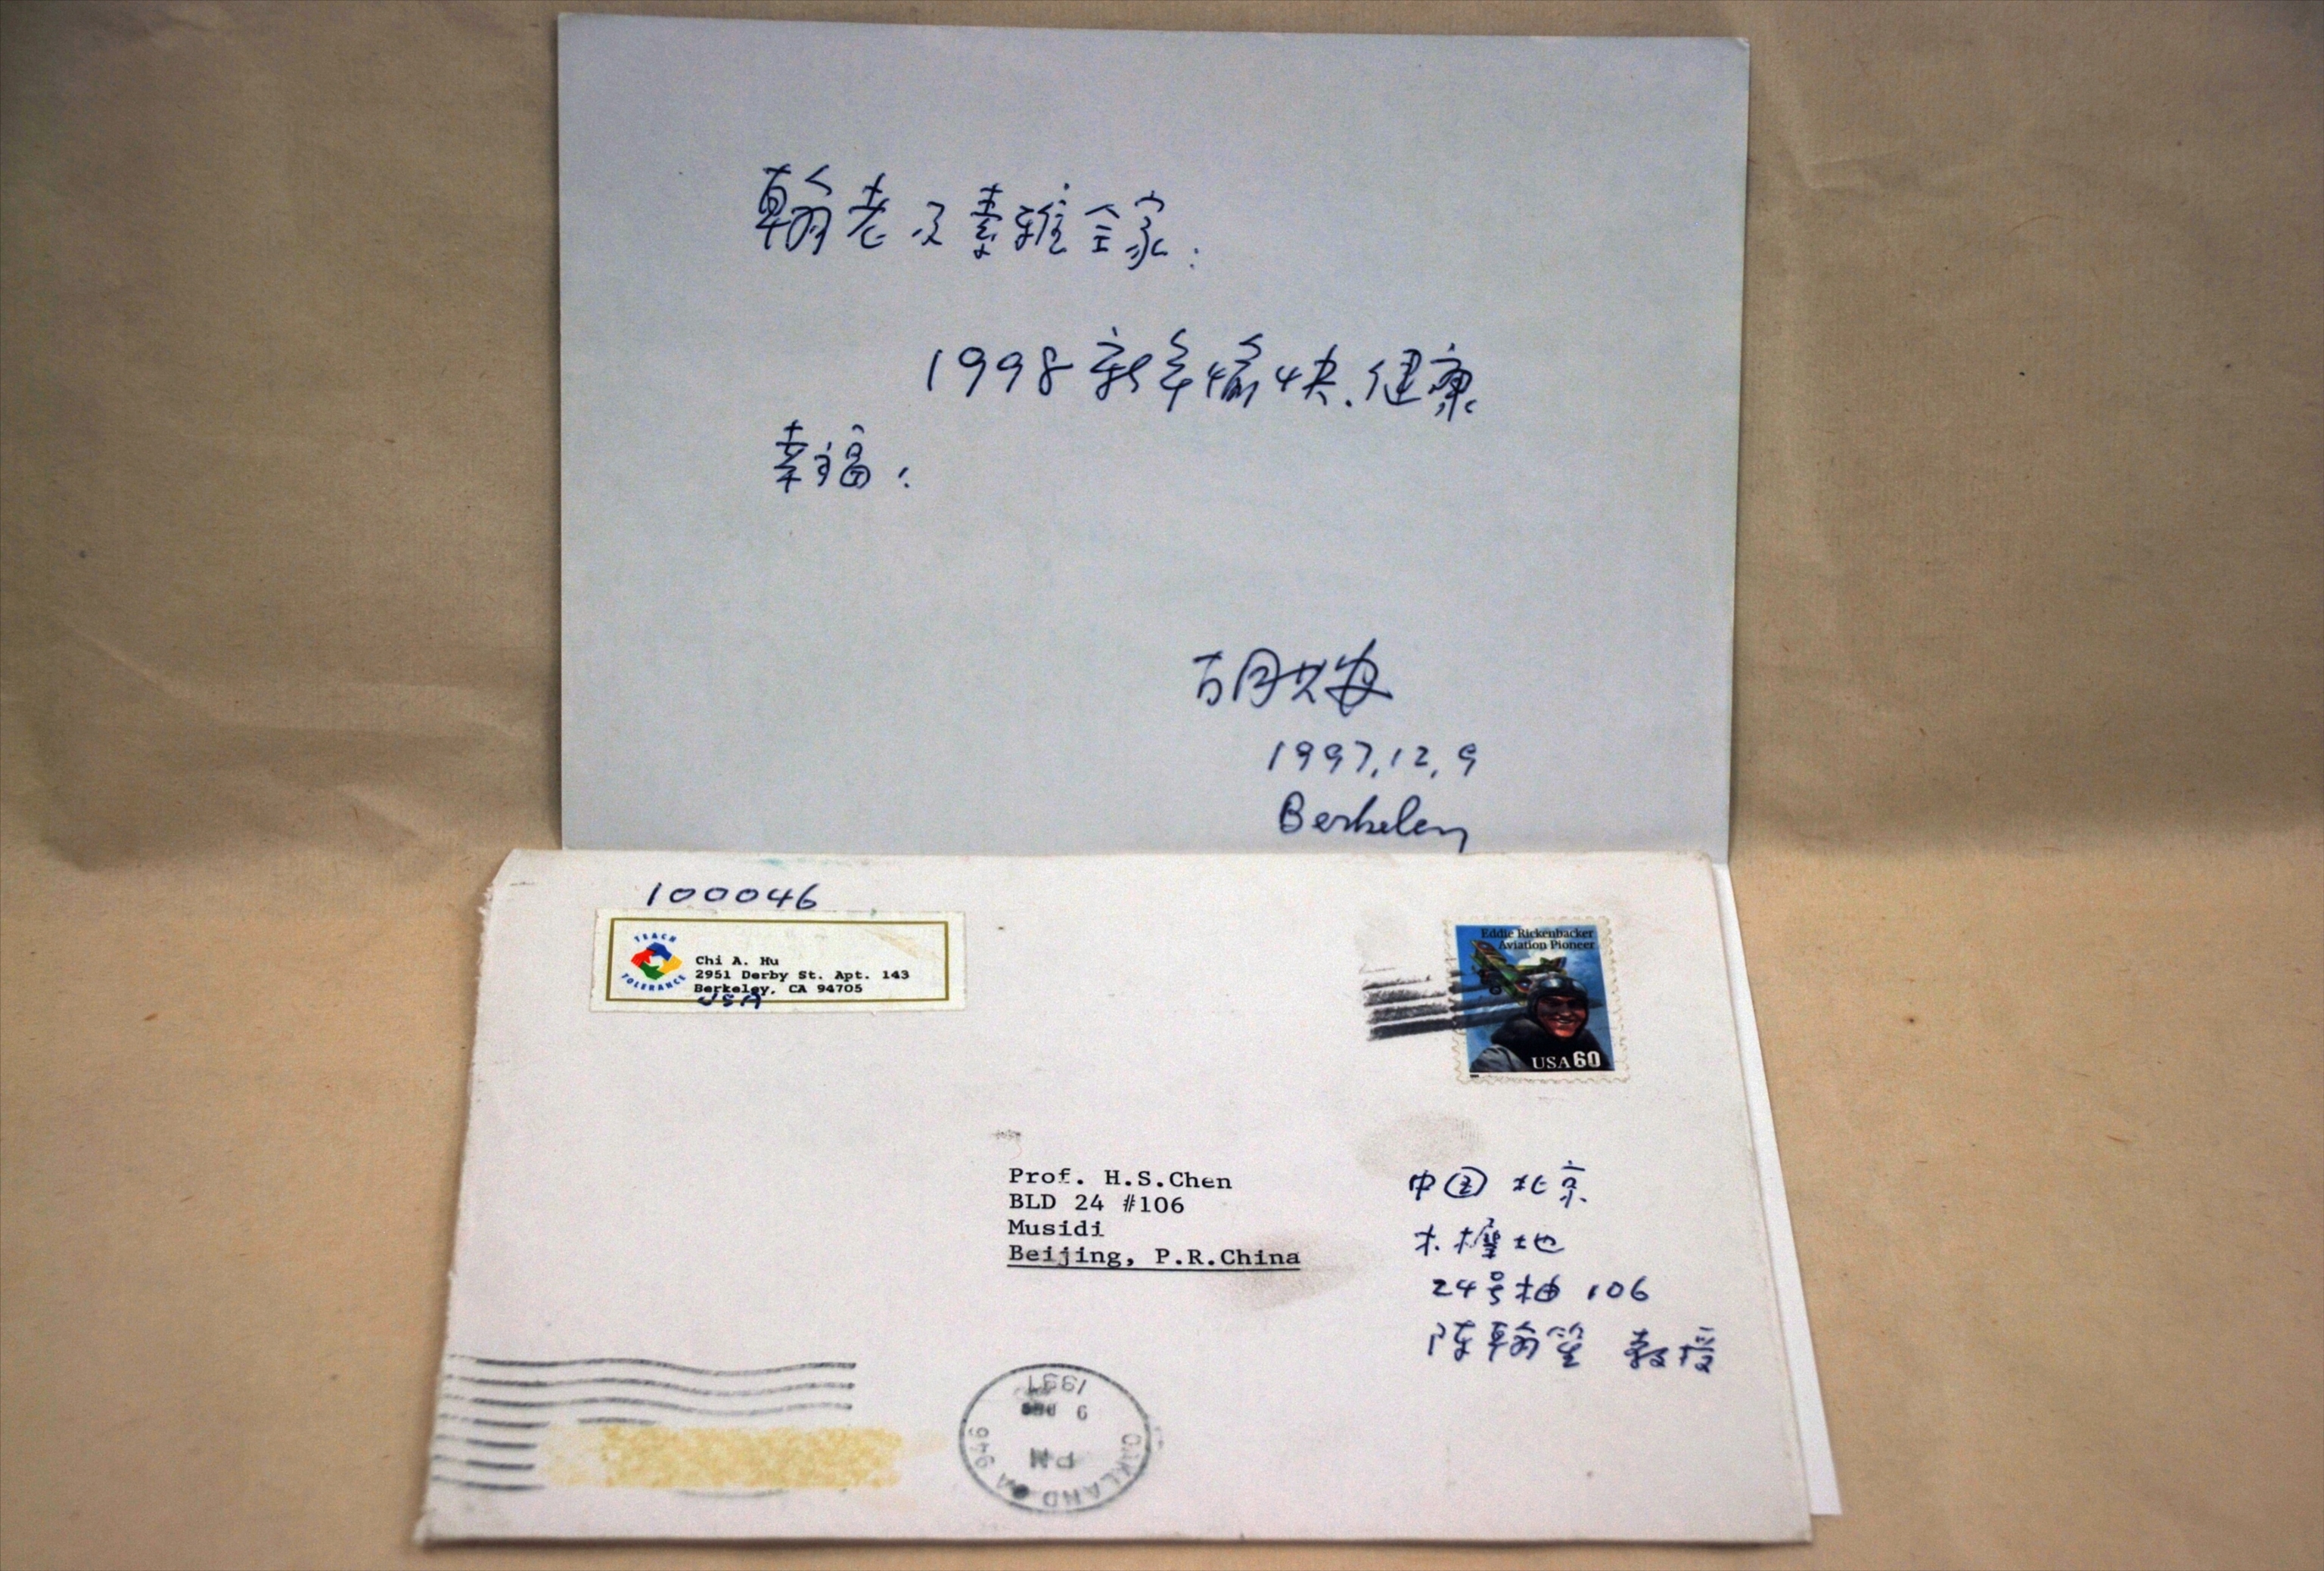 翰老及素雅全家：
1998新年愉快、健康
幸福！
胡
1997.12.9
Berkeley
100046
TEACH
TOLERANCE
Chi A. Hu
2951 Derby St. Apt. 143
Berkeley, CA 94705
USA
Eddie Rickenbacker
Aviation Pioneer
USA 60
Prof. H.S.Chen
BLD 24 #106
Musidi
Beijing, P.R.China
中国 北京
木樨地
24号 106
陈翰笙 教授
1997
9 DEC
PM
OAKLAND CA 946